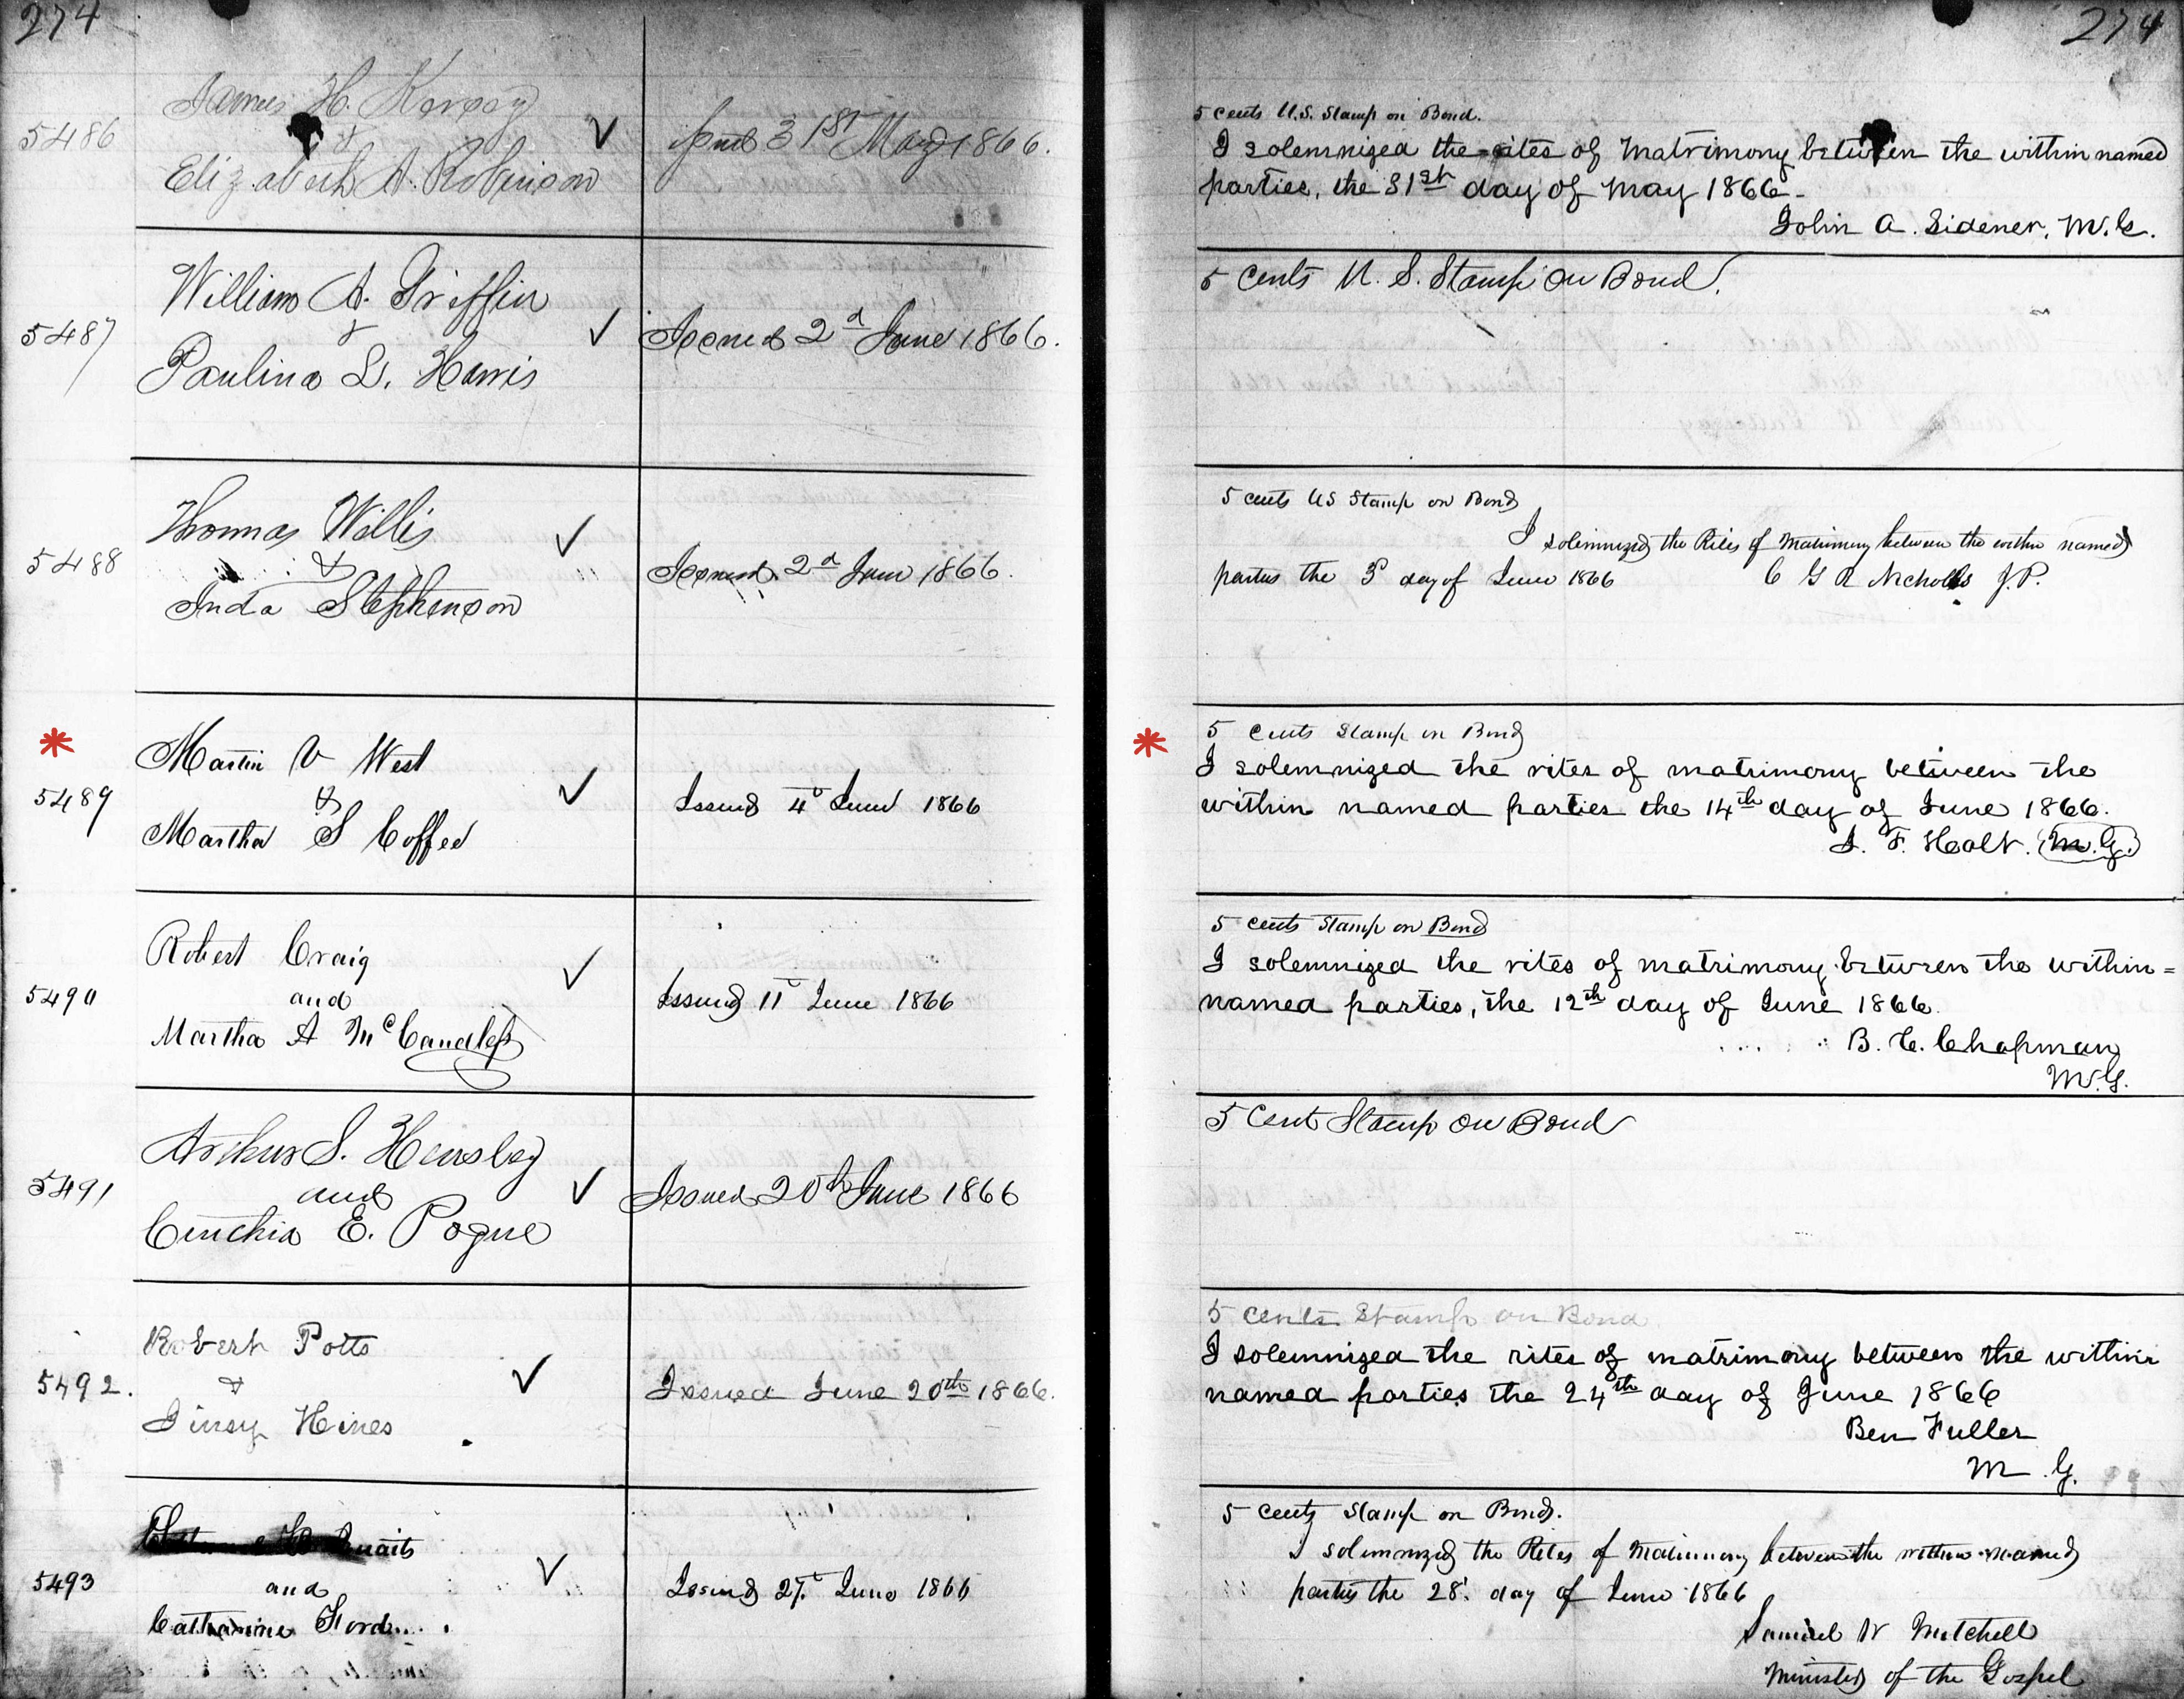 274
5486
James H. Kersey
&
Elizabeth A. Robinson
31st May 1866.
5487
William A. Griffin
&
Paulina L. Harris
Issued 2d June 1866.
5488
Thomas Willis
&
Inda Stephenson
Issued 2d June 1866.
5489
Martin V West
&
Martha S Coffee
Issued 4th June 1866
5490
Robert Craig
and
Martha A McCandless
Issued 11th June 1866
5491
Arthur S. Hensley
and
Cinthia E. Pogue
Issued 20th June 1866
5492.
Robert Potts
&
Jinsy Hines
Issued June 20th 1866.
5493
Quaits
and
Catharine Ford
Issued 27th June 1866
274
5 cents U.S. Stamp on Bond.
I solemnized the rites of matrimony between the within named
parties, the 31st day of May 1866.
John A. Sidener, M.G.
5 cents U. S. Stamp on Bond.
5 cents US Stamp on Bond
I solemnized the Rites of Matrimony between the within named
parties the 3d day of June 1866 C G R Nicholls J.P.
5 cents Stamp on Bond
I solemnized the rites of matrimony between the
within named parties the 14th day of June 1866.
J. F. Holt. (M.G.)
5 cents Stamp on Bond
I solemnized the rites of matrimony between the within=
named parties, the 12th day of June 1866.
B. C. Chapman
M.G.
5 Cent Stamp on Bond
5 cents Stamp on Bond
I solemnized the rites of matrimony between the within
named parties the 24th day of June 1866
Ben Fuller
M G.
5 cents Stamp on Bond.
I solemnized the Rites of Matrimony between the within named
parties the 28' day of June 1866
Samuel W Mitchell
Minister of the Gospel